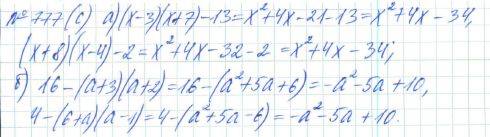 № 777 (с) а) (x-3)(x+7)-13=x²+4x-21-13=x²+4x-34,
(x+8)(x-4)-2=x²+4x-32-2=x²+4x-34;
б) 16-(a+3)(a+2)=16-(a²+5a+6)=-a²-5a+10,
4-(6+a)(a-1)=4-(a²+5a-6)=-a²-5a+10.